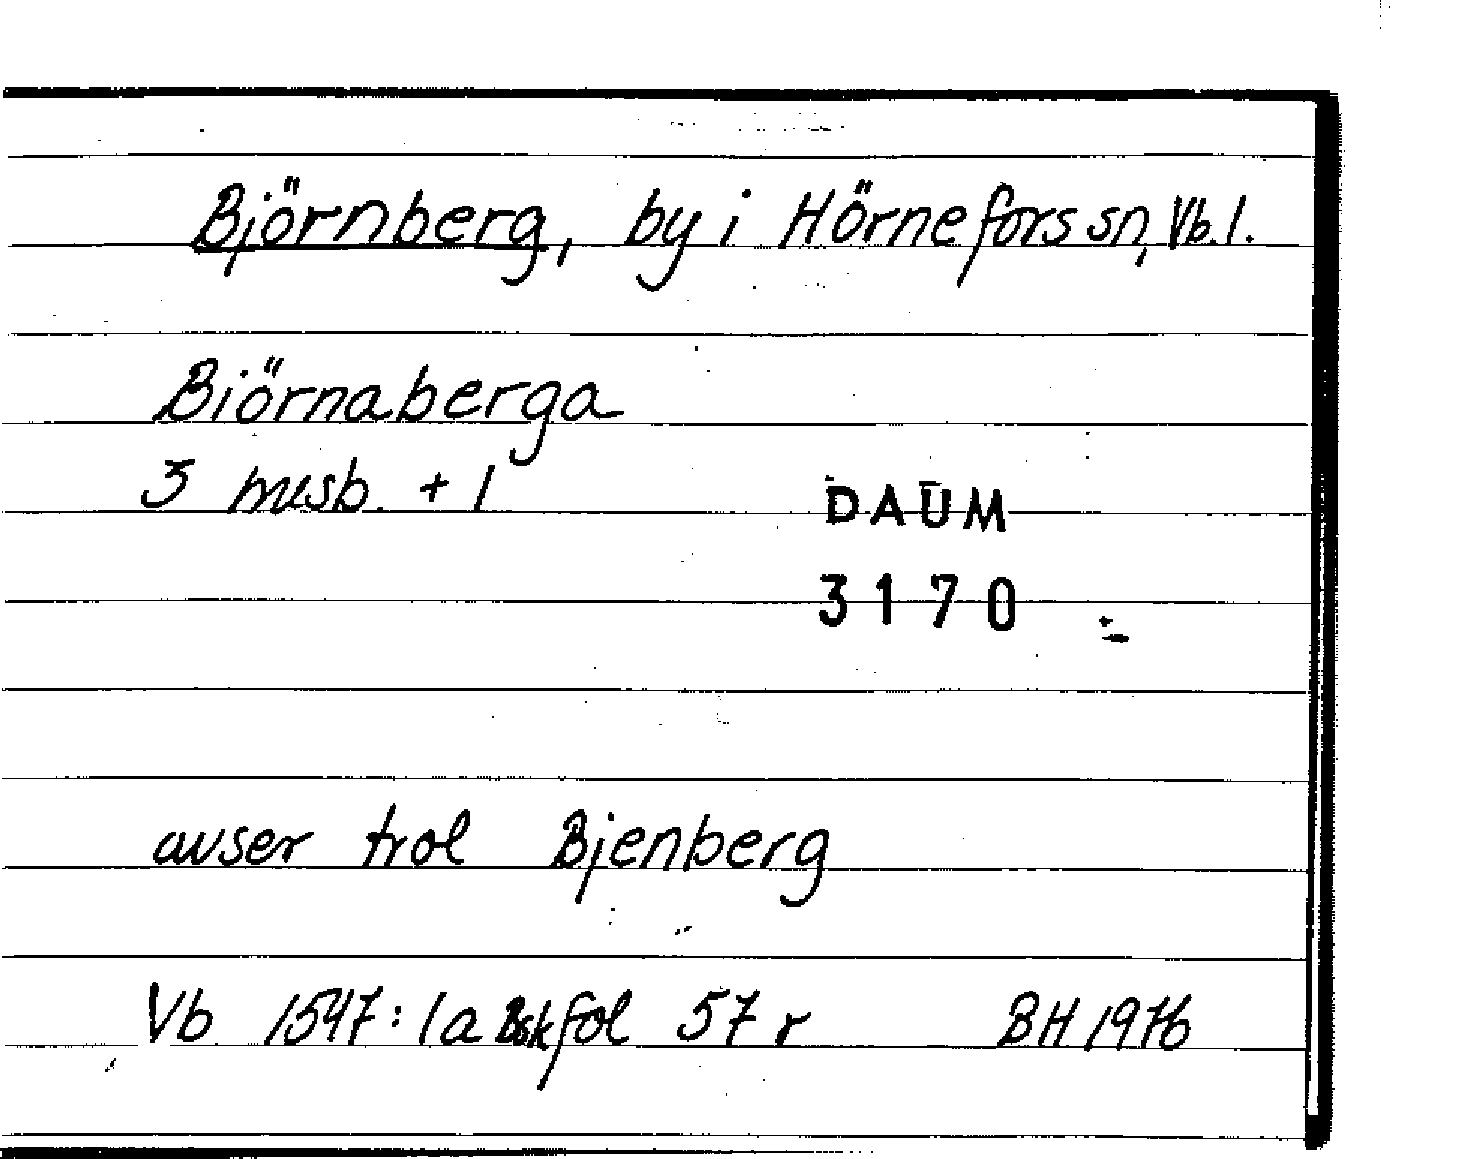 Björnberg, by i Hörnefors sn, Vb. l.
Biörnaberga
3 mesb. + 1
DAUM
3170
avser trol Bjenberg
Vb 1547: 1a Bsk fol 57 r BH 1976